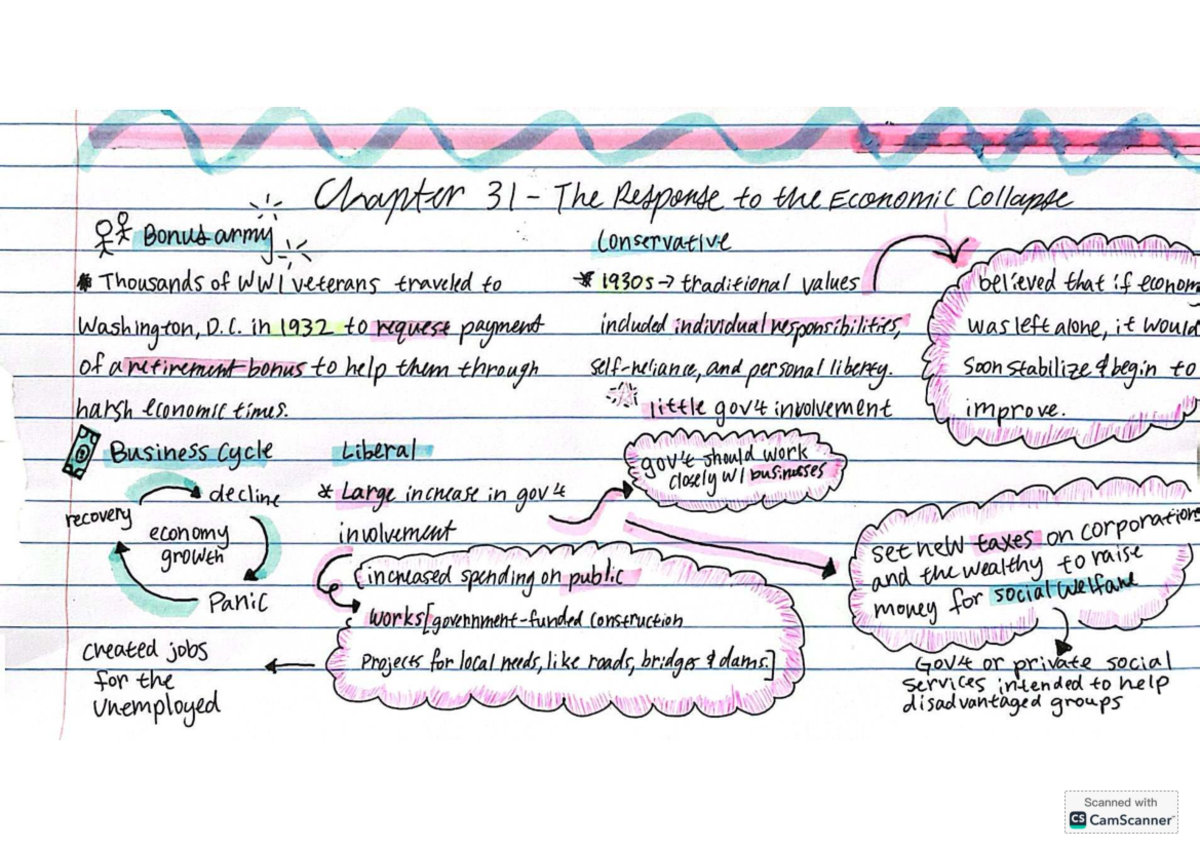 Chapter 31 - The Response to the Economic Collapse
Bonus army
* Thousands of WW1 veterans traveled to
Washington, D.C. in 1932 to request payment
of a retirement bonus to help them through
harsh economic times.
Conservative
* 1930s → traditional values
included individual responsibilities,
self-reliance, and personal liberty.
little gov't involvement
believed that if econom
was left alone, it would
soon stabilize & begin to
improve.
Business Cycle
decline
recovery
economy
growth
Panic
Liberal
* Large increase in gov't
involvement
gov't should work
closely w/ businesses
increased spending on public
works [government-funded construction
projects for local needs, like roads, bridges & dams.]
created jobs
for the
unemployed
set new taxes on corporations
and the wealthy to raise
money for social welfare
Gov't or private social
services intended to help
disadvantaged groups
Scanned with
CS CamScanner